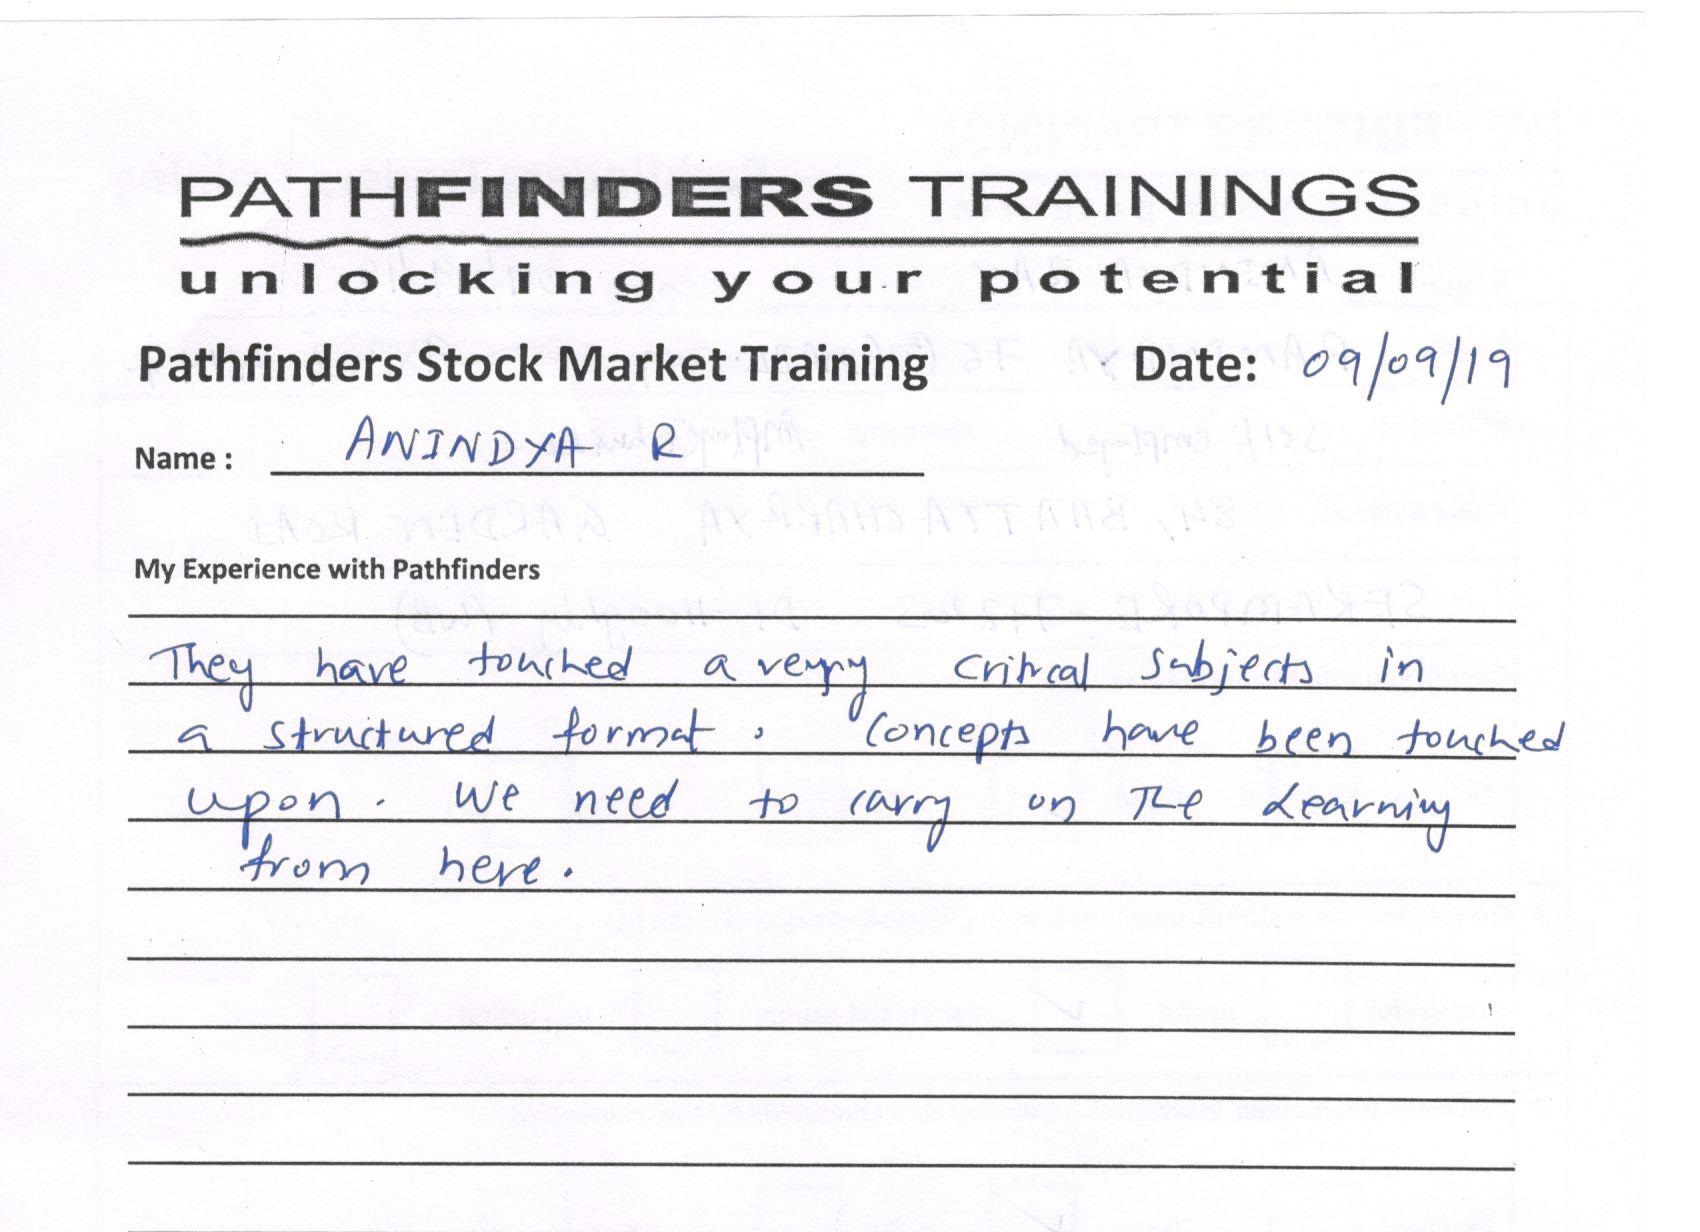 PATHFINDERS TRAININGS
unlocking your potential
Pathfinders Stock Market Training Date: 09/09/19
Name : ANINDYA R
My Experience with Pathfinders
They have touched a very critical subjects in
a structured format. Concepts have been touched
upon. We need to carry on The Learning
from here.